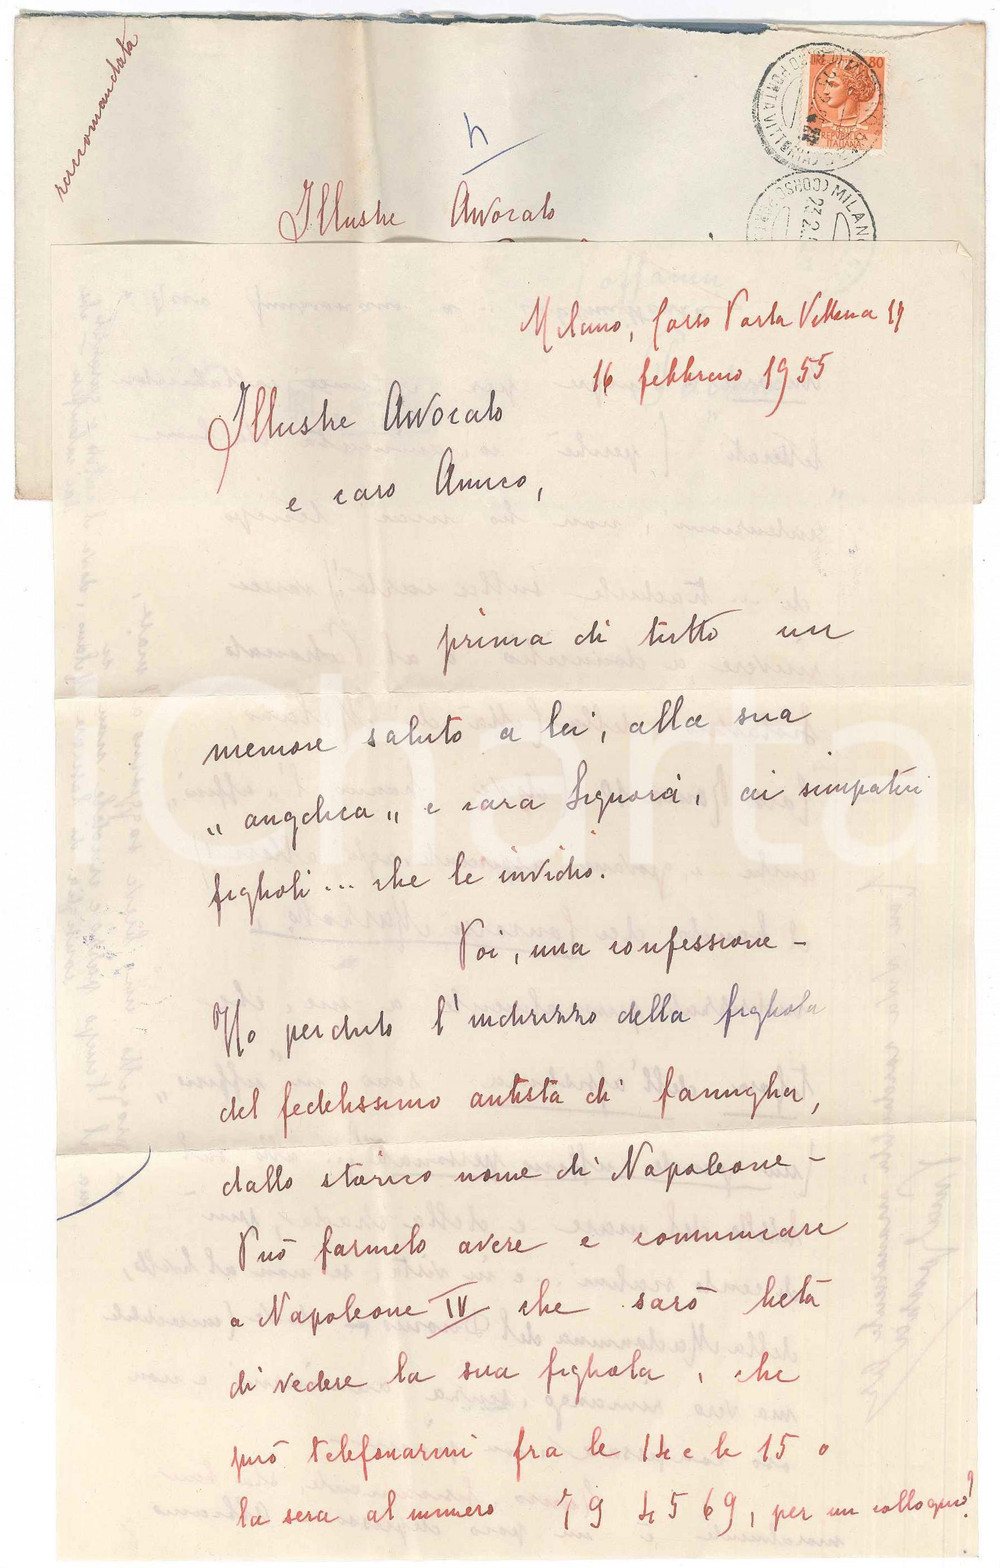 raccomandata
80
REPUBBLICA
ITALIANA
MILANO
23.2.
h
Illustre Avvocato
Milano, Corso Porta Vittoria 11
16 febbraio 1955
Illustre Avvocato
e caro Amico,
prima di tutto un
memore saluto a lei, alla sua
„ angelica „ e cara Signora, ai simpatici
figlioli... che le invidio.
Poi, una confessione -
Ho perduto l'indirizzo della figliola
del fedelissimo autista di famiglia,
dallo storico nome di Napoleone -
Può farmelo avere e comunicare
a Napoleone IV che sarò lieta
di vedere la sua figliola, che
può telefonarmi fra le 14 e le 15 o
la sera al numero 79 45 69, per un colloquio?
Charta